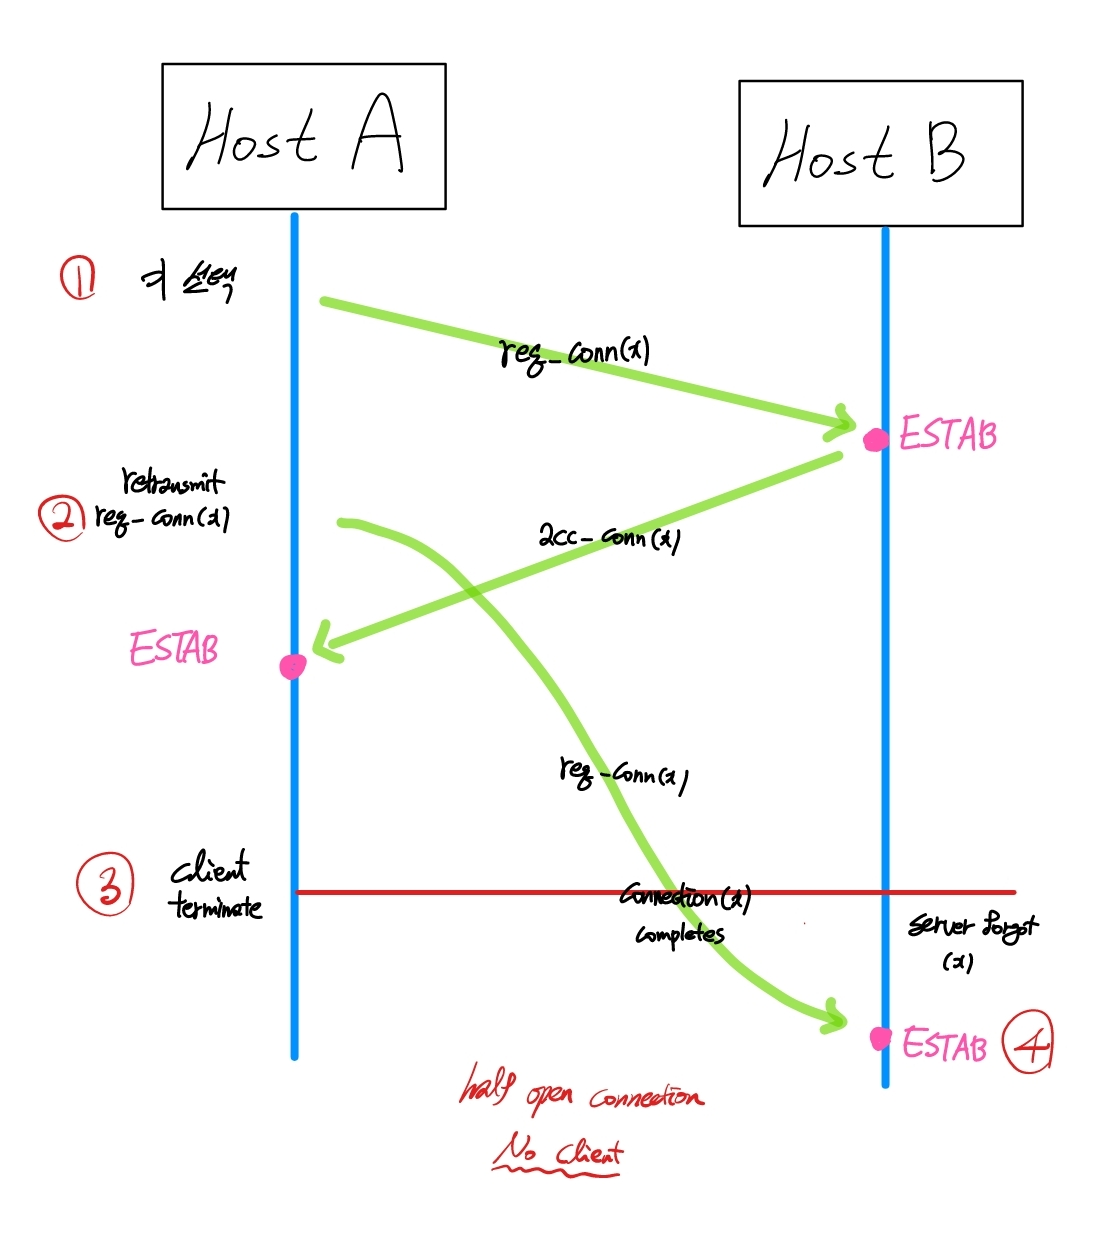 Host A
Host B
① x 선택
req_conn(x)
ESTAB
retransmit
② req-conn(x)
acc-conn(x)
ESTAB
req-conn(x)
③ client
terminate
connection(x)
completes
server forgot
(x)
ESTAB ④
half open connection
No client